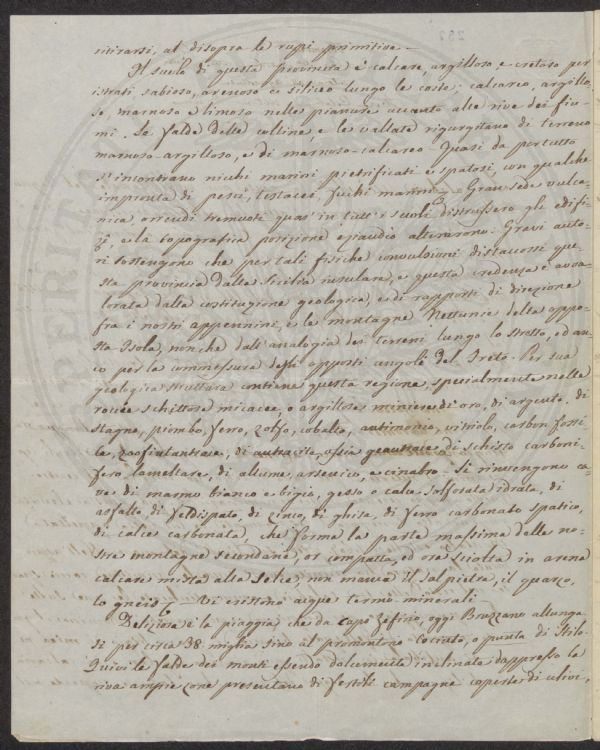 ritirarsi, al disopra le rupi primitive —
Il suolo di questa provincia è calcare, argilloso, e cretoso per
istrati sabioso, arenoso e siliceo lungo le coste; calcareo, argillo-
so, marnoso e limoso nelle pianure accanto alle rive dei fiu-
mi. Le falde delle colline, e le vallate rigurgitano di terreno
marnoso-argilloso, e di marnoso-calcareo. Quasi da per tutto
s'incontrano nicchi marini pietrificati e spatosi, con qualche
impronta di pesci, testacei, fuchi marini. Gran sede vulca-
nica, orrendi tremuoti quas' in tutt'i secoli distrussero gli edifi-
zj, e la topografica posizione eziaudio alterarono. Gravi auto-
ri sostengono che per tali fisiche convulsioni distaccossi que-
sta provincia dalla Sicilia insulare, e questa credenza è avva-
lorata dalla costituzione geologica, e di rapporti di direzione
fra i nostri appennini, e le montagne Nettunie della oppo-
sta Isola, non che dall'analogia dei terreni lungo lo stretto, ed an-
co per la commessura degli opposti angoli del Freto. Per sua
geologica struttura contiene questa regione, specialmente nelle
roccie schistose micacee, o argillose miniere di oro, di argento, di
stagno, piombo, ferro, zolfo, cobalto, antimonio, vitriolo, carbon fossi-
le, di antracite, ossia di schisto carboni-
fero lamellare, di allume, arsenico, e cinabro. Si rinvengono ca-
ve di marmo bianco e bigio, gesso o calce solforata idrata, di
asfalto di feldispato, di zinco, di ghisa, di ferro carbonato spatico,
di calce carbonata, che forma la parte massima delle no-
stre montagne secondarie, or compatta, ed ora sciolta in arena
calcare mista alla selce, non manca il salpietra, il quarzo,
lo gneis. — Vi esistono acque termo minerali —
Deliziosa è la piaggia che da capo Zefirio, oggi Bruzzano allunga-
si per circa 38 miglia sino al promontorio Cocinto, o punta di Stilo.
Quivi le falde dei monti essendo dolcemente inclinate dappresso la
riva ampie zone presentano di fertili campagne coperte di ulivi,